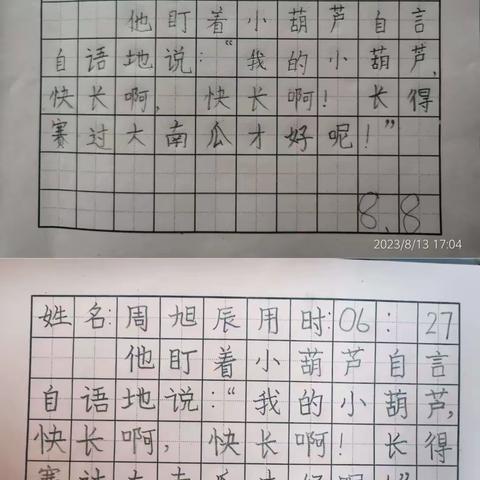 他盯着小葫芦自言
自语地说:“我的小葫芦,
快长啊,快长啊!长得
赛过大南瓜才好呢!”
8.8
2023/8/13 17:04
姓名:周旭辰用时:06:27
他盯着小葫芦自言
自语地说:“我的小葫芦,
快长啊,快长啊!长得
赛过大南瓜才好呢!”